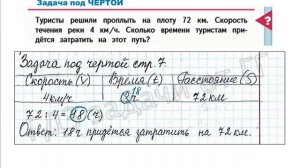 Задача под ЧЕРТОЙ
Туристы решили проплыть на плоту 72 км. Скорость
течения реки 4 км/ч. Сколько времени туристам при-
дётся затратить на этот путь?
?
Задача под чертой стр. 7
Скорость (V) Время (t) Расстояние (S)
4км/ч 18 72км
72 : 4 = 18 (ч)
Ответ: 18ч придётся затратить на 72 км.